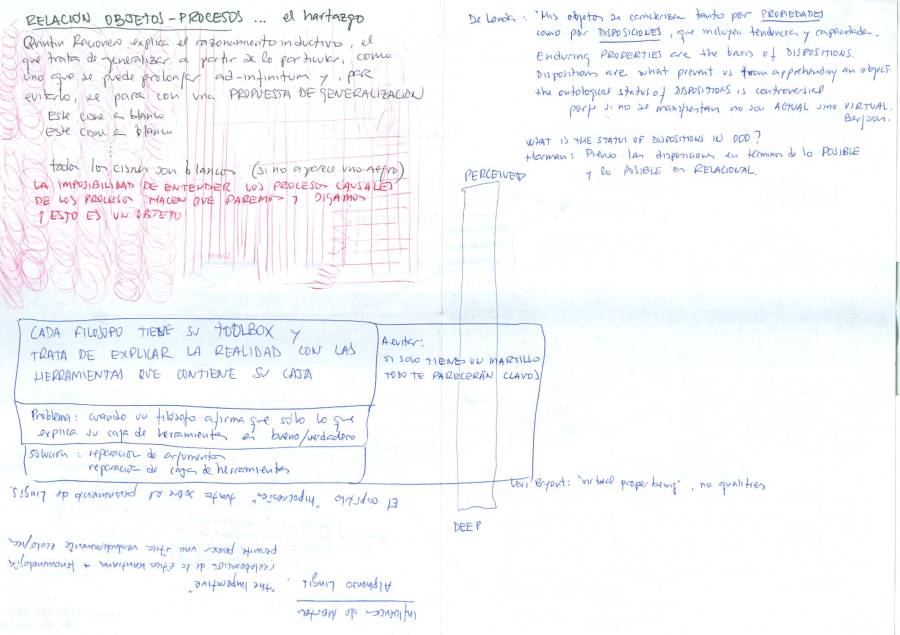 RELACIÓN OBJETOS-PROCESOS ... el hartazgo
Quintin Racionero explica el razonamiento inductivo, el
que trata de generalizar a partir de lo particular, como
uno que se puede prolongar ad-infinitum y, para
evitarlo, se para con una PROPUESTA DE GENERALIZACIÓN
Este cisne es blanco
Este cisne es blanco
todos los cisnes son blancos (si no aparece uno negro)
LA IMPOSIBILIDAD DE ENTENDER LOS PROCESOS CAUSALES
DE LOS PROCESOS HACEN QUE PAREMOS Y DIGAMOS
¡ESTO ES UN OBJETO!
CADA FILOSOFO TIENE SU TOOLBOX Y
TRATA DE EXPLICAR LA REALIDAD CON LAS
HERRAMIENTAS QUE CONTIENE SU CAJA
Problema: cuando un filósofo afirma que sólo lo que
explica su caja de herramientas es bueno/verdadero
solución: reparación de argumentos
reparación de cajas de herramientas
A evitar:
SI SOLO TIENES UN MARTILLO
TODO TE PARECERÁN CLAVOS
De Landa: "Mis objetos se caracterizan tanto por PROPIEDADES
como por DISPOSICIONES, que incluyen tendencias y capacidades.
Enduring PROPERTIES are the basis of DISPOSITIONS.
Dispositions are what prevent us from apprehending an object.
the ontological status of DISPOSITIONS is controversial
porq. si no se manifiestan no son ACTUAL sino VIRTUAL.
Bergson.
WHAT IS THE STATUS OF DISPOSITIONS IN OOO?
Harman: Pienso las disposiciones en términos de lo POSIBLE
y lo POSIBLE es RELACIONAL.
PERCEIVED
DEEP
Levi Bryant: "virtual proper being", no qualities
Influencias de Morton
Alphonso Lingis. "the Imperative"
reelaboración de la ética kantiana + fenomenología
permite pensar una ética verdaderamente ecológica.
El capítulo "hipocresías" trata sobre el pensamiento de Lingis.